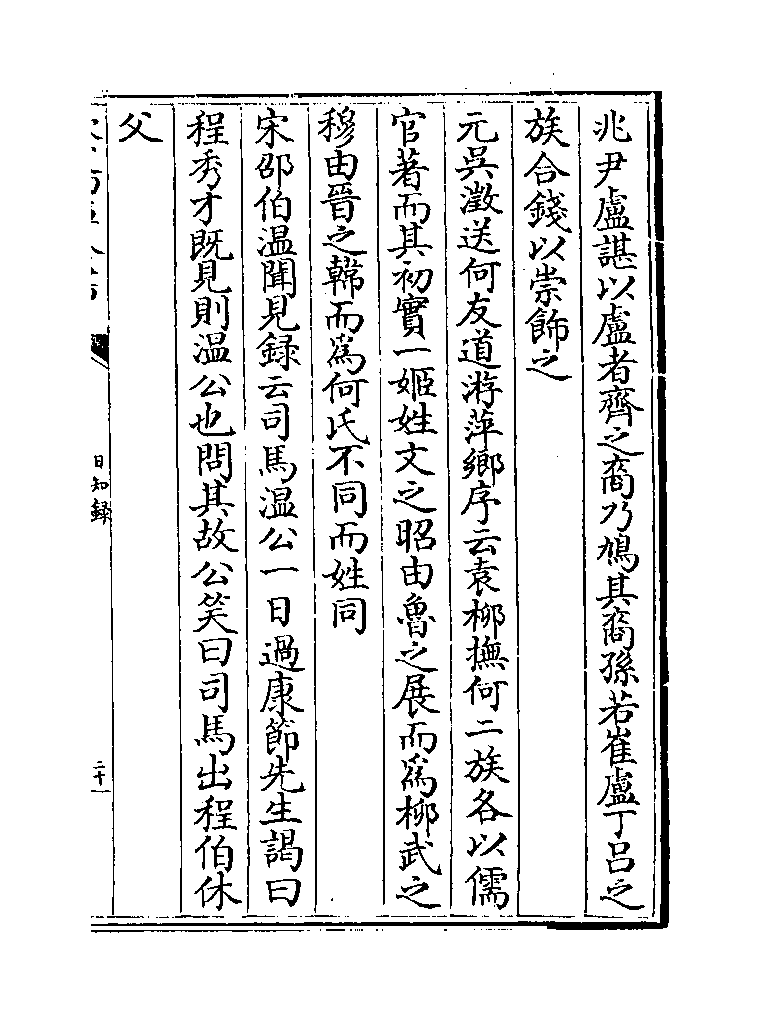 兆尹盧諶以盧者齊之裔乃鳩其裔孫若崔盧丁吕之
族合錢以崇飾之
元吳澂送何友道游萍鄉序云袁栁撫何二族各以儒
官著而其初實一姬姓文之昭由魯之展而為栁武之
穆由晉之韓而為何氏不同而姓同
宋邵伯温聞見録云司馬温公一日過康節先生謁曰
程秀才既見則温公也問其故公笑曰司馬出程伯休
父
日知録
二十一